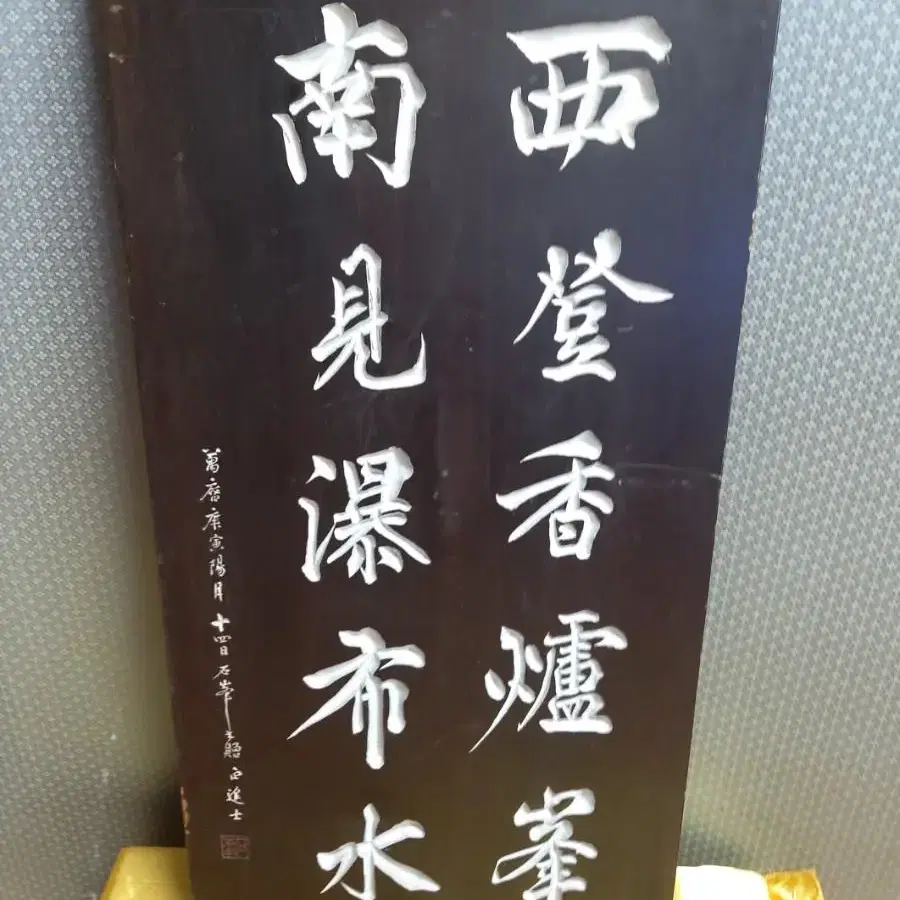 西登香爐峯
南見瀑布水
萬曆庚寅陽月十四日石峯